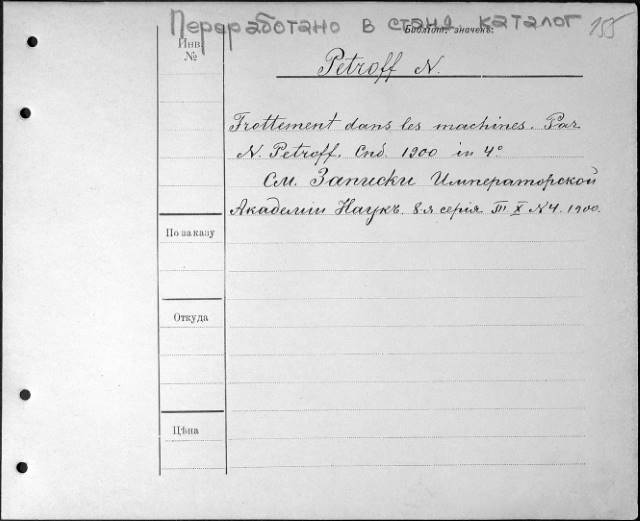 Переработано в станд каталог
155
Библіот. значекъ:
Инв.
№
Petroff N.
Frottement dans les machines. Par
N. Petroff. Спб. 1900 in 4º
См. Записки Императорской
Академіи Наукъ. 8-я серія. Т. X № 4. 1900.
По заказу
Откуда
Цѣна